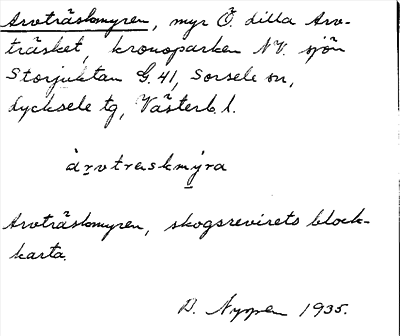 Arvträskmyren, myr Ö. dilla Arv-
träsket, kronoparken NV. sjön
Storjuktan G. 41, Sorsele sn,
Lycksele tg, Västerb. l.
àrvtraskmýra
Arvträskmyren, skogsrevirets block-
karta.
D. Nyman 1935.